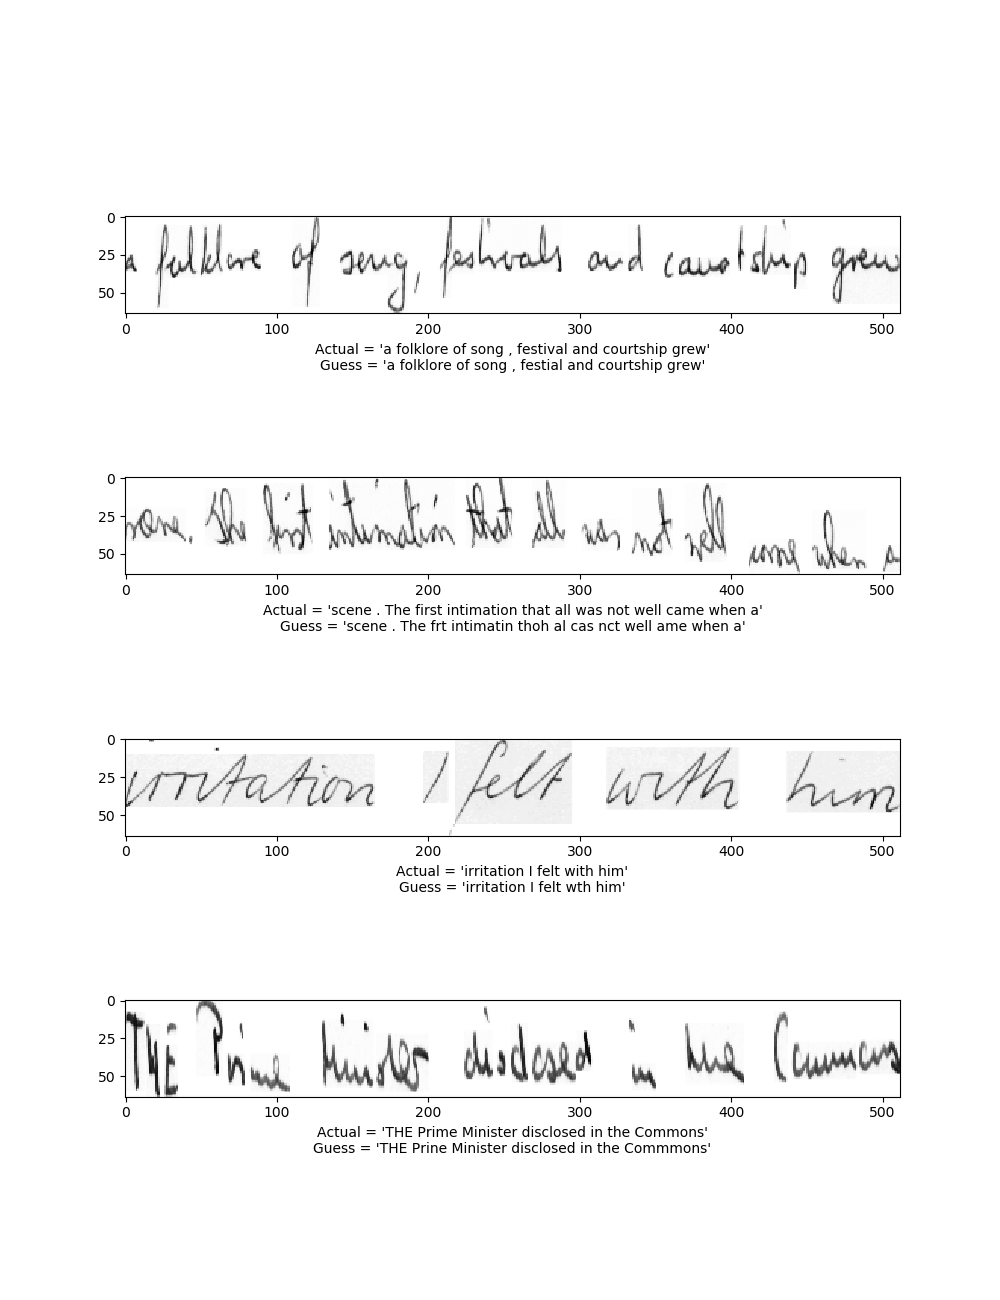 0
25
50
a folklore of song, festivals and courtship grew
0 100 200 300 400 500
Actual = 'a folklore of song , festival and courtship grew'
Guess = 'a folklore of song , festial and courtship grew'
0
25
50
scene. The first intimation that all was not well came when a
0 100 200 300 400 500
Actual = 'scene . The first intimation that all was not well came when a'
Guess = 'scene . The frt intimatin thoh al cas nct well ame when a'
0
25
50
irritation I felt with him
0 100 200 300 400 500
Actual = 'irritation I felt with him'
Guess = 'irritation I felt wth him'
0
25
50
THE Prime Minister disclosed in the Commons
0 100 200 300 400 500
Actual = 'THE Prime Minister disclosed in the Commons'
Guess = 'THE Prine Minister disclosed in the Commmons'